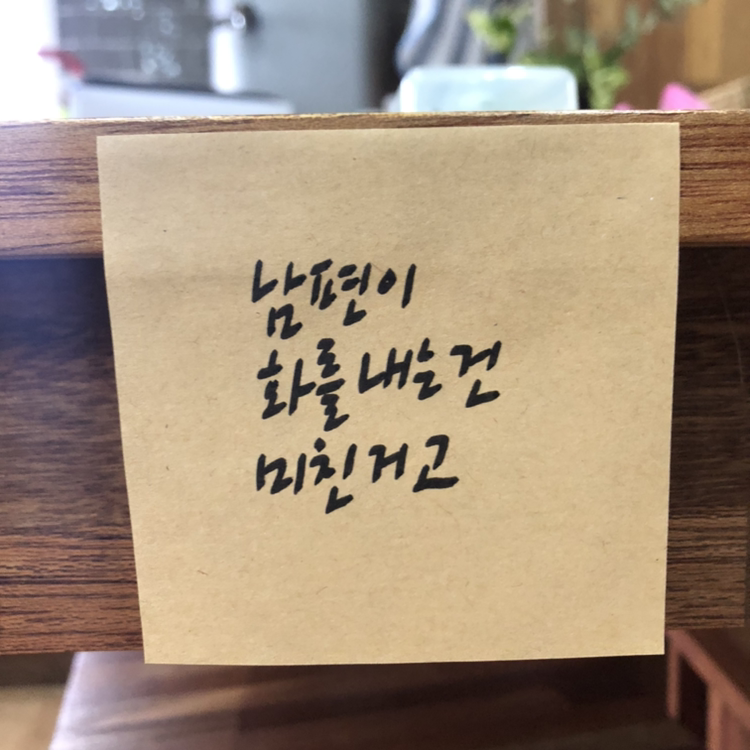 남편이
화를 내는 건
미친 거고